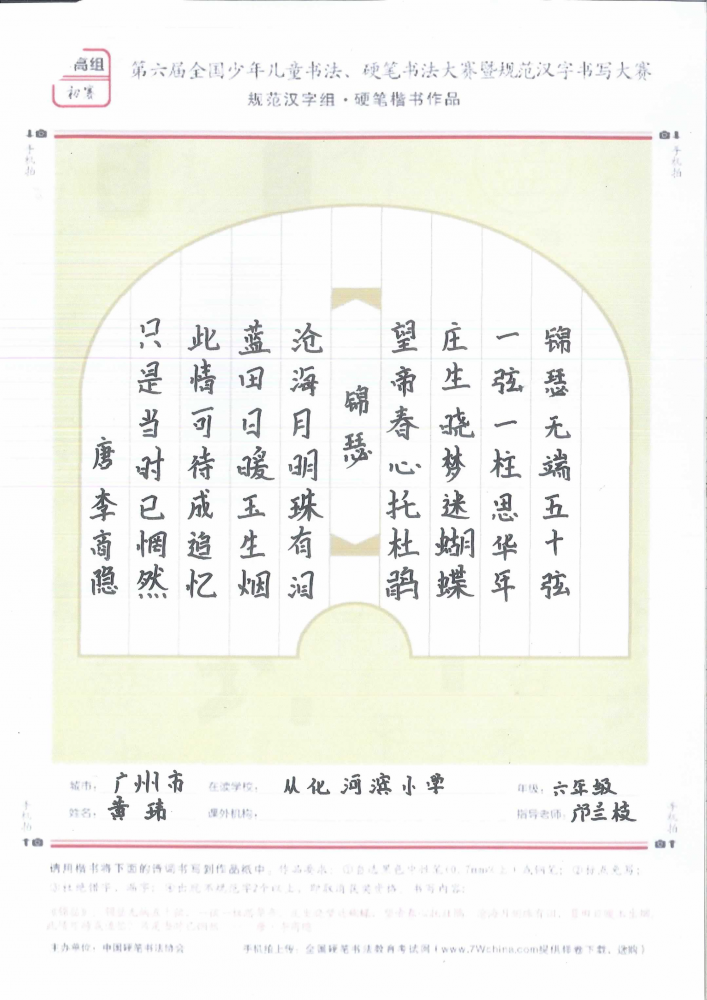 高组
初赛
第六届全国少年儿童书法、硬笔书法大赛暨规范汉字书写大赛
规范汉字组·硬笔楷书作品
手机拍
手机拍
锦瑟无端五十弦
一弦一柱思华年
庄生晓梦迷蝴蝶
望帝春心托杜鹃
锦瑟
沧海月明珠有泪
蓝田日暖玉生烟
此情可待成追忆
只是当时已惘然
唐李商隐
城市: 广州市 在读学校: 从化河滨小学 年级: 六年级
姓名: 黄玮 课外机构: 指导老师: 邝兰枝
手机拍
手机拍
请用楷书将下面的诗词书写到作品纸中。作品要求:
书写内容:
主办单位:中国硬笔书法协会 手机拍上传:全国硬笔书法教育考试网(www.7Wchina.com提供样卷下载、选购)